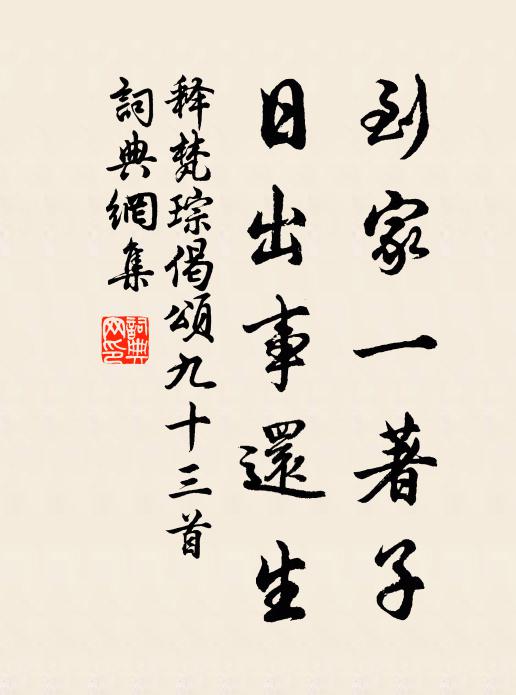 到家一著子
日出事還生
释梵琮偈頌九十三首
詞典網集
詞典网印